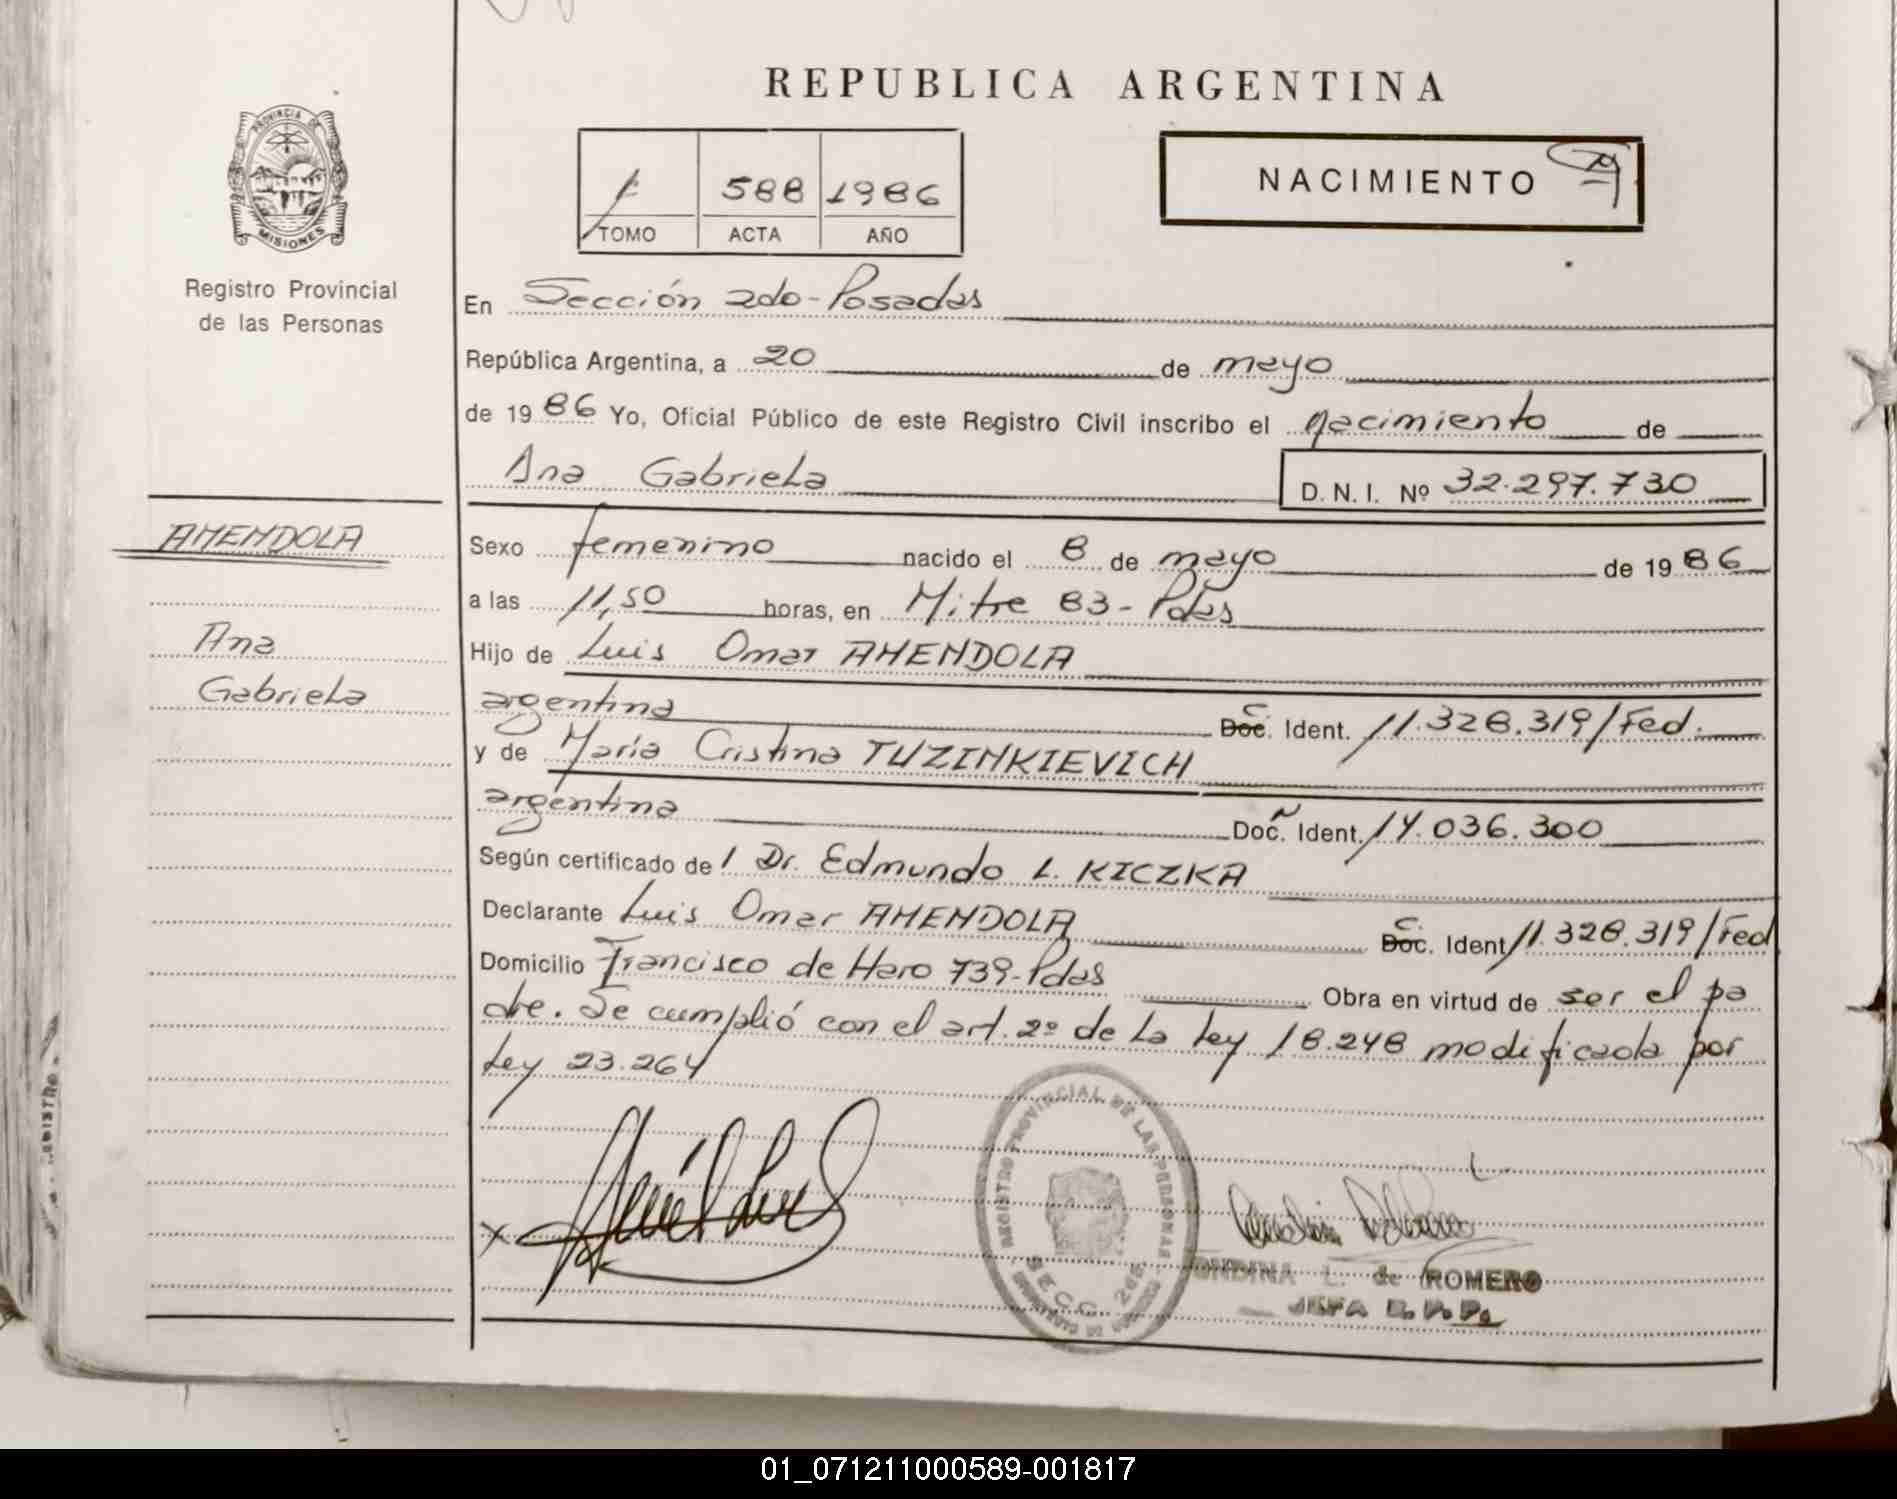 REPUBLICA ARGENTINA
PROVINCIA DE
MISIONES
Registro Provincial
de las Personas
588 1986
TOMO ACTA AÑO
NACIMIENTO
En Sección 2do-Posadas
República Argentina, a 20 de mayo
de 1986 Yo, Oficial Público de este Registro Civil inscribo el nacimiento de
Ana Gabriela D. N. I. Nº 32.297.730
AMENDOLA
Ana
Gabriela
Sexo femenino nacido el 8 de mayo de 1986
a las 11,50 horas, en Mitre 83-Pdas
Hijo de Luis Omar AMENDOLA
argentina C. Doc. Ident. 11.328.319/Fed.
y de María Cristina TUZINKIEVICH
argentina Doc. Ident. 14.036.300
Según certificado de l Dr. Edmundo L. KICZKA
Declarante Luis Omar AMENDOLA C. Doc. Ident 11.328.319/Fed
Domicilio Francisco de Haro 739-Pdas Obra en virtud de ser el pa
dre. Se cumplió con el art. 2º de la Ley 18.248 modificada por
Ley 23.264
REGISTRO PROVINCIAL DE LAS PERSONAS
SECC. 2da
ONDINA L. de ROMERO
JEFA R. P. P.
01_071211000589-001817